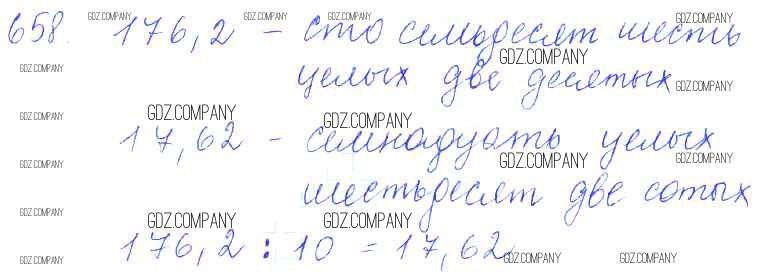 658. 176,2 – сто семьдесят шесть
целых две десятых
17,62 – семнадцать целых
шестьдесят две сотых
176,2 : 10 = 17,62
GDZ.COMPANY GDZ.COMPANY GDZ.COMPANY GDZ.COMPANY
GDZ.COMPANY
GDZ.COMPANY GDZ.COMPANY
GDZ.COMPANY GDZ.COMPANY GDZ.COMPANY
GDZ.COMPANY GDZ.COMPANY GDZ.COMPANY
GDZ.COMPANY GDZ.COMPANY GDZ.COMPANY
GDZ.COMPANY GDZ.COMPANY GDZ.COMPANY